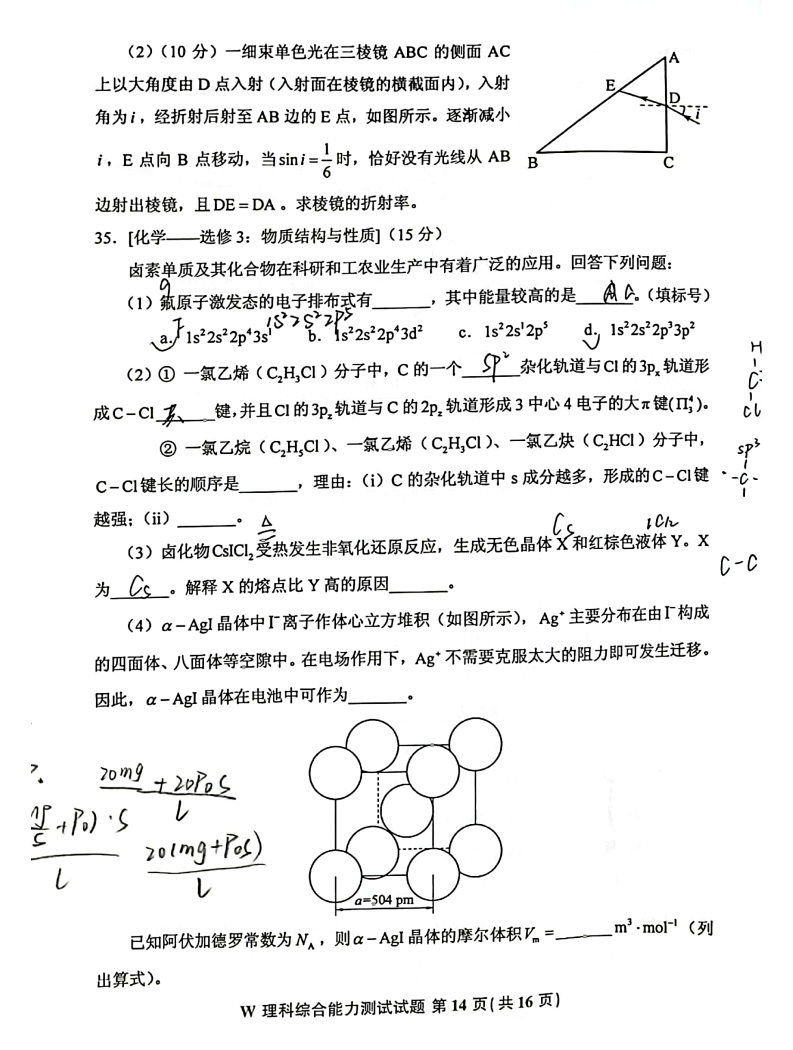 (2)(10 分) 一细束单色光在三棱镜 ABC 的侧面 AC
上以大角度由 D 点入射(入射面在棱镜的横截面内),入射
角为 i,经折射后射至 AB 边的 E 点,如图所示。逐渐减小
i,E 点向 B 点移动,当 sin i = 1/6 时,恰好没有光线从 AB
边射出棱镜,且 DE = DA 。求棱镜的折射率。
A
E
D
i
B
C
35.[化学——选修 3:物质结构与性质](15 分)
卤素单质及其化合物在科研和工农业生产中有着广泛的应用。回答下列问题:
9
(1)氟原子激发态的电子排布式有______,其中能量较高的是______。(填标号)
1s²2s²2p⁵
a. 1s²2s²2p⁴3s¹ b. 1s²2s²2p⁴3d² c. 1s²2s¹2p⁵ d. 1s²2s²2p³3p²
(2)① 一氯乙烯(C₂H₃Cl)分子中,C 的一个 sp² 杂化轨道与 Cl 的 3pₓ 轨道形
成 C−Cl ______键,并且 Cl 的 3p_z 轨道与 C 的 2p_z 轨道形成 3 中心 4 电子的大 π 键(Π₃⁴)。
H
C
Cl
② 一氯乙烷(C₂H₅Cl)、一氯乙烯(C₂H₃Cl)、一氯乙炔(C₂HCl)分子中,
sp³
C−Cl 键长的顺序是______,理由:(i)C 的杂化轨道中 s 成分越多,形成的 C−Cl 键
-C-
越强;(ii)______。
Δ
Cs
ICl₂
(3)卤化物 CsICl₂ 受热发生非氧化还原反应,生成无色晶体 X 和红棕色液体 Y。X
C-C
为 Cs 。解释 X 的熔点比 Y 高的原因______。
(4)α−AgI 晶体中 I⁻ 离子作体心立方堆积(如图所示),Ag⁺ 主要分布在由 I⁻ 构成
的四面体、八面体等空隙中。在电场作用下,Ag⁺ 不需要克服太大的阻力即可发生迁移。
因此,α−AgI 晶体在电池中可作为______。
20mg + 20P₀S
L
+P₀)·S
S
L
20(mg+P₀S)
L
a=504 pm
已知阿伏加德罗常数为 N_A,则 α−AgI 晶体的摩尔体积 V_m =______ m³·mol⁻¹(列
出算式)。
W 理科综合能力测试试题 第 14 页(共 16 页)